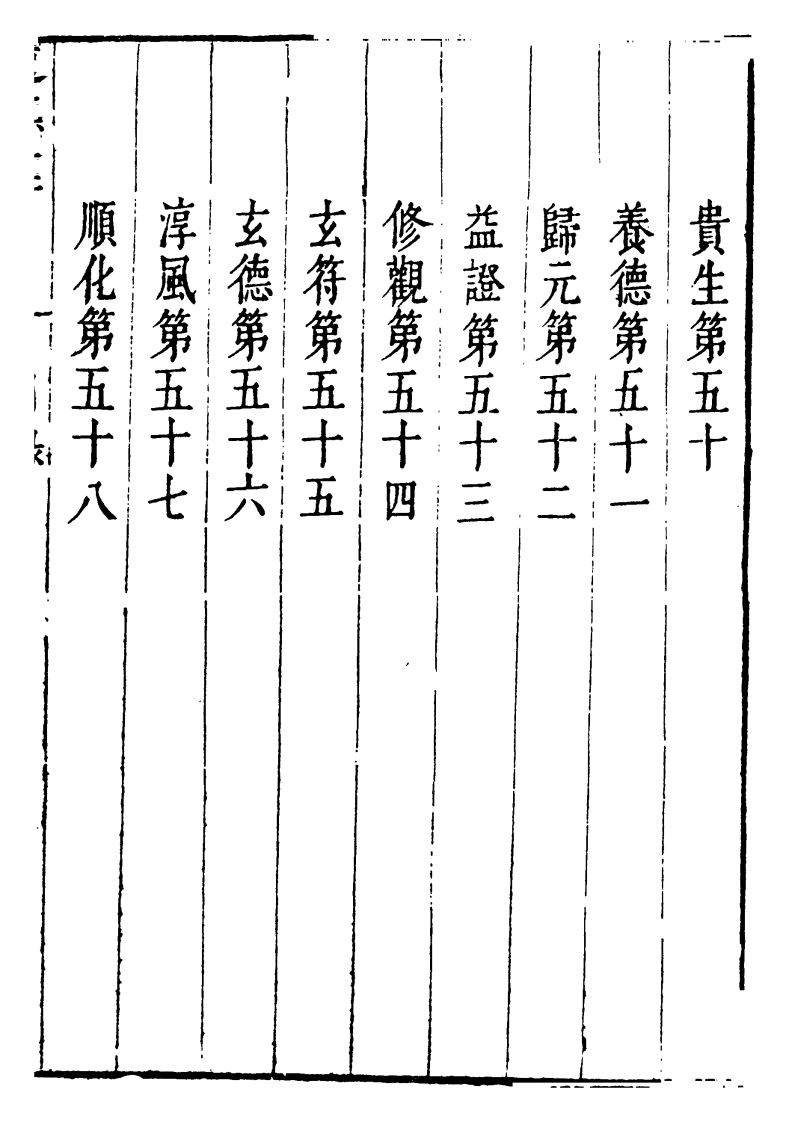 貴生第五十
養德第五十一
歸元第五十二
益證第五十三
修觀第五十四
玄符第五十五
玄德第五十六
淳風第五十七
順化第五十八